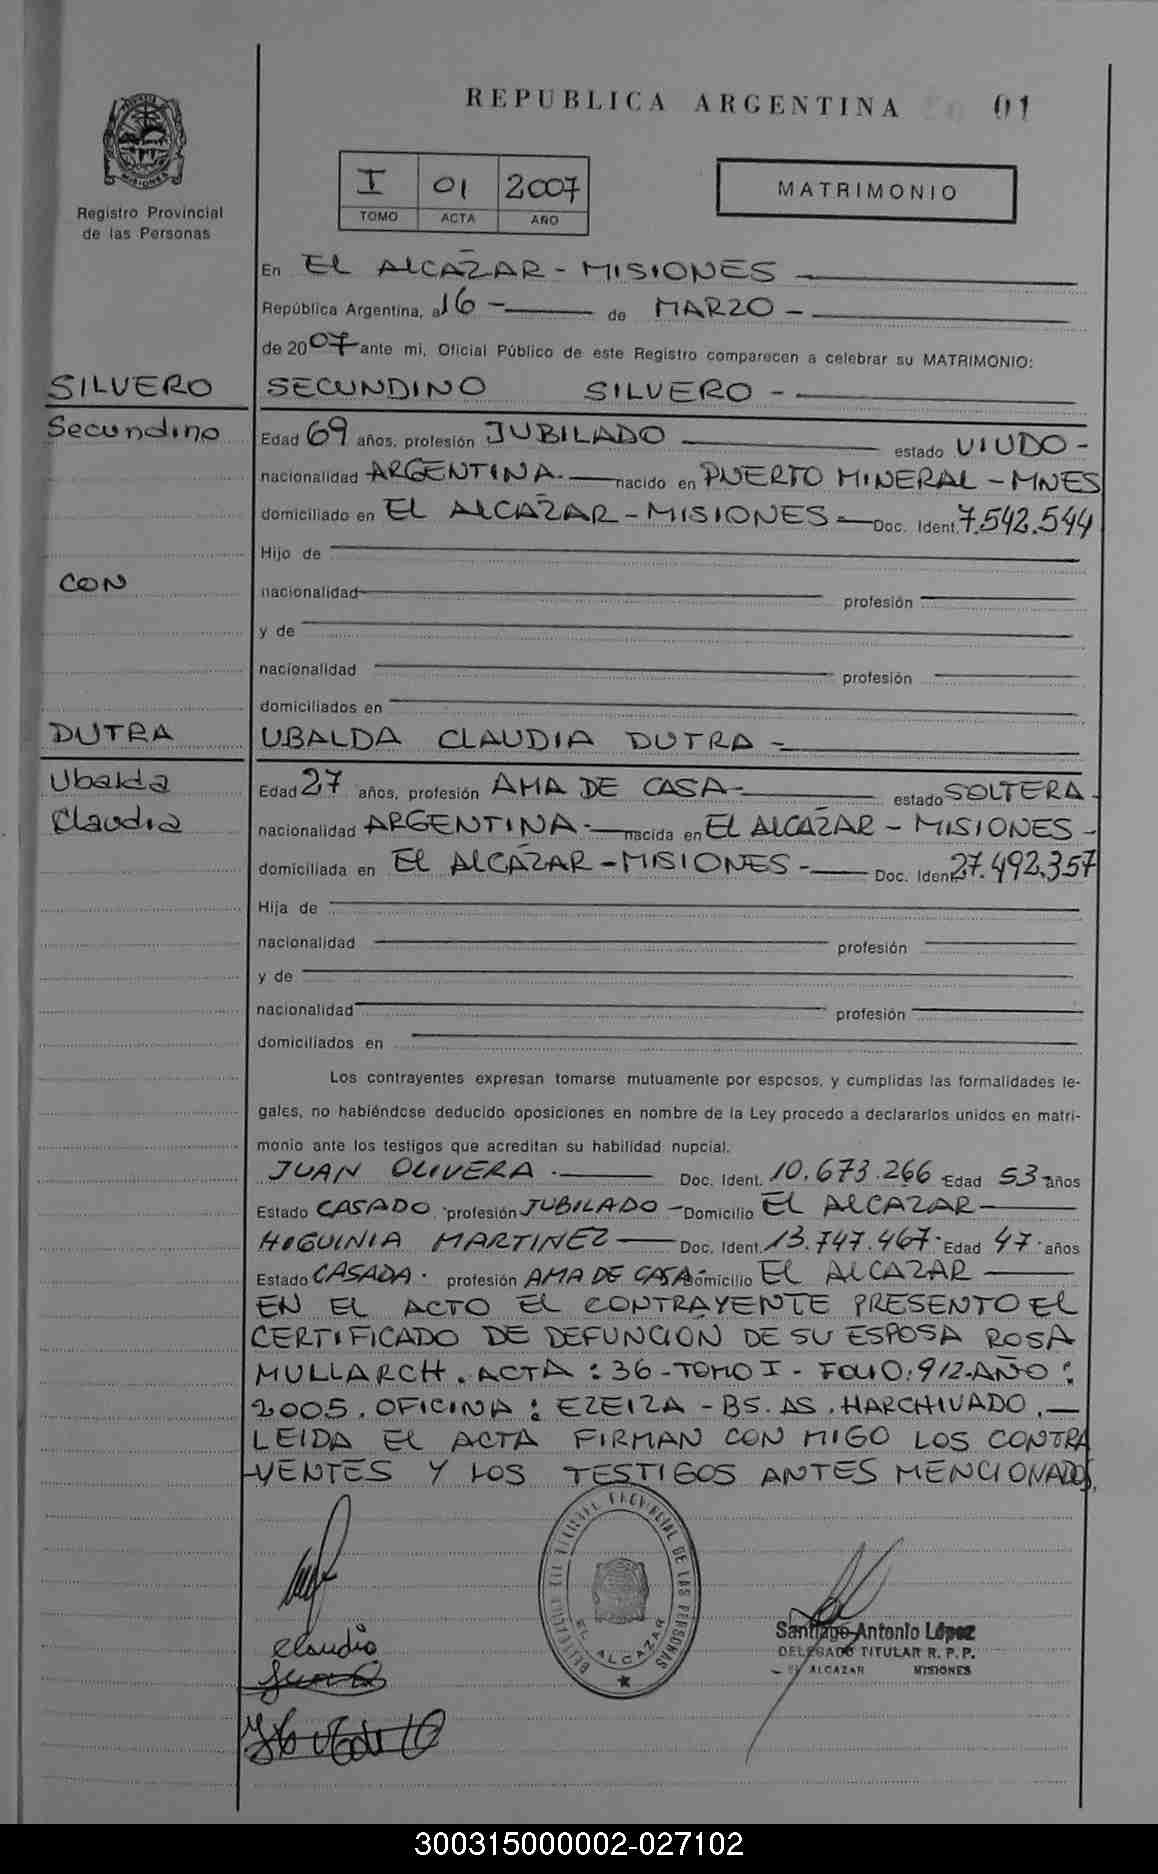 REPUBLICA ARGENTINA 01
MISIONES
Registro Provincial
de las Personas
I 01 2007
TOMO ACTA AÑO
MATRIMONIO
En EL ALCAZAR - MISIONES
República Argentina, a 16 - de MARZO -
de 2007 ante mi, Oficial Público de este Registro comparecen a celebrar su MATRIMONIO:
SILVERO SECUNDINO SILVERO -
Secundino Edad 69 años, profesión JUBILADO estado VIUDO -
nacionalidad ARGENTINA. nacido en PUERTO MINERAL - MNES
domiciliado en EL ALCAZAR - MISIONES - Doc. Ident. 7.542.544
Hijo de
CON nacionalidad profesión
y de
nacionalidad profesión
domiciliados en
DUTRA UBALDA CLAUDIA DUTRA -
Ubalda Edad 27 años, profesión AMA DE CASA - estado SOLTERA -
Claudia nacionalidad ARGENTINA - nacida en EL ALCAZAR - MISIONES -
domiciliada en EL ALCAZAR - MISIONES - Doc. Iden 27.492.357
Hija de
nacionalidad profesión
y de
nacionalidad profesión
domiciliados en
Los contrayentes expresan tomarse mutuamente por esposos, y cumplidas las formalidades le-
gales, no habiéndose deducido oposiciones en nombre de la Ley procedo a declararlos unidos en matri-
monio ante los testigos que acreditan su habilidad nupcial.
JUAN OLIVERA - Doc. Ident. 10.673.266 Edad 53 años
Estado CASADO. profesión JUBILADO - Domicilio EL ALCAZAR -
HIGUINIA MARTINEZ - Doc. Ident. 13.747.467 - Edad 47 - años
Estado CASADA. profesión AMA DE CASA - Domicilio EL ALCAZAR
EN EL ACTO EL CONTRAYENTE PRESENTO EL
CERTIFICADO DE DEFUNCIÓN DE SU ESPOSA ROSA
MULLARCH. ACTA: 36 - TOMO I - FOLIO: 912 - AÑO:
2005. OFICINA: EZEIZA - BS. AS. HARCHIVADO. -
LEIDA EL ACTA FIRMAN CON MIGO LOS CONTRA
-YENTES Y LOS TESTIGOS ANTES MENCIONADOS.
PROVINCIAL DE LAS PERSONAS
EL ALCAZAR
claudia
Santiago Antonio López
DELEGADO TITULAR R. P. P.
EL ALCAZAR MISIONES
300315000002-027102